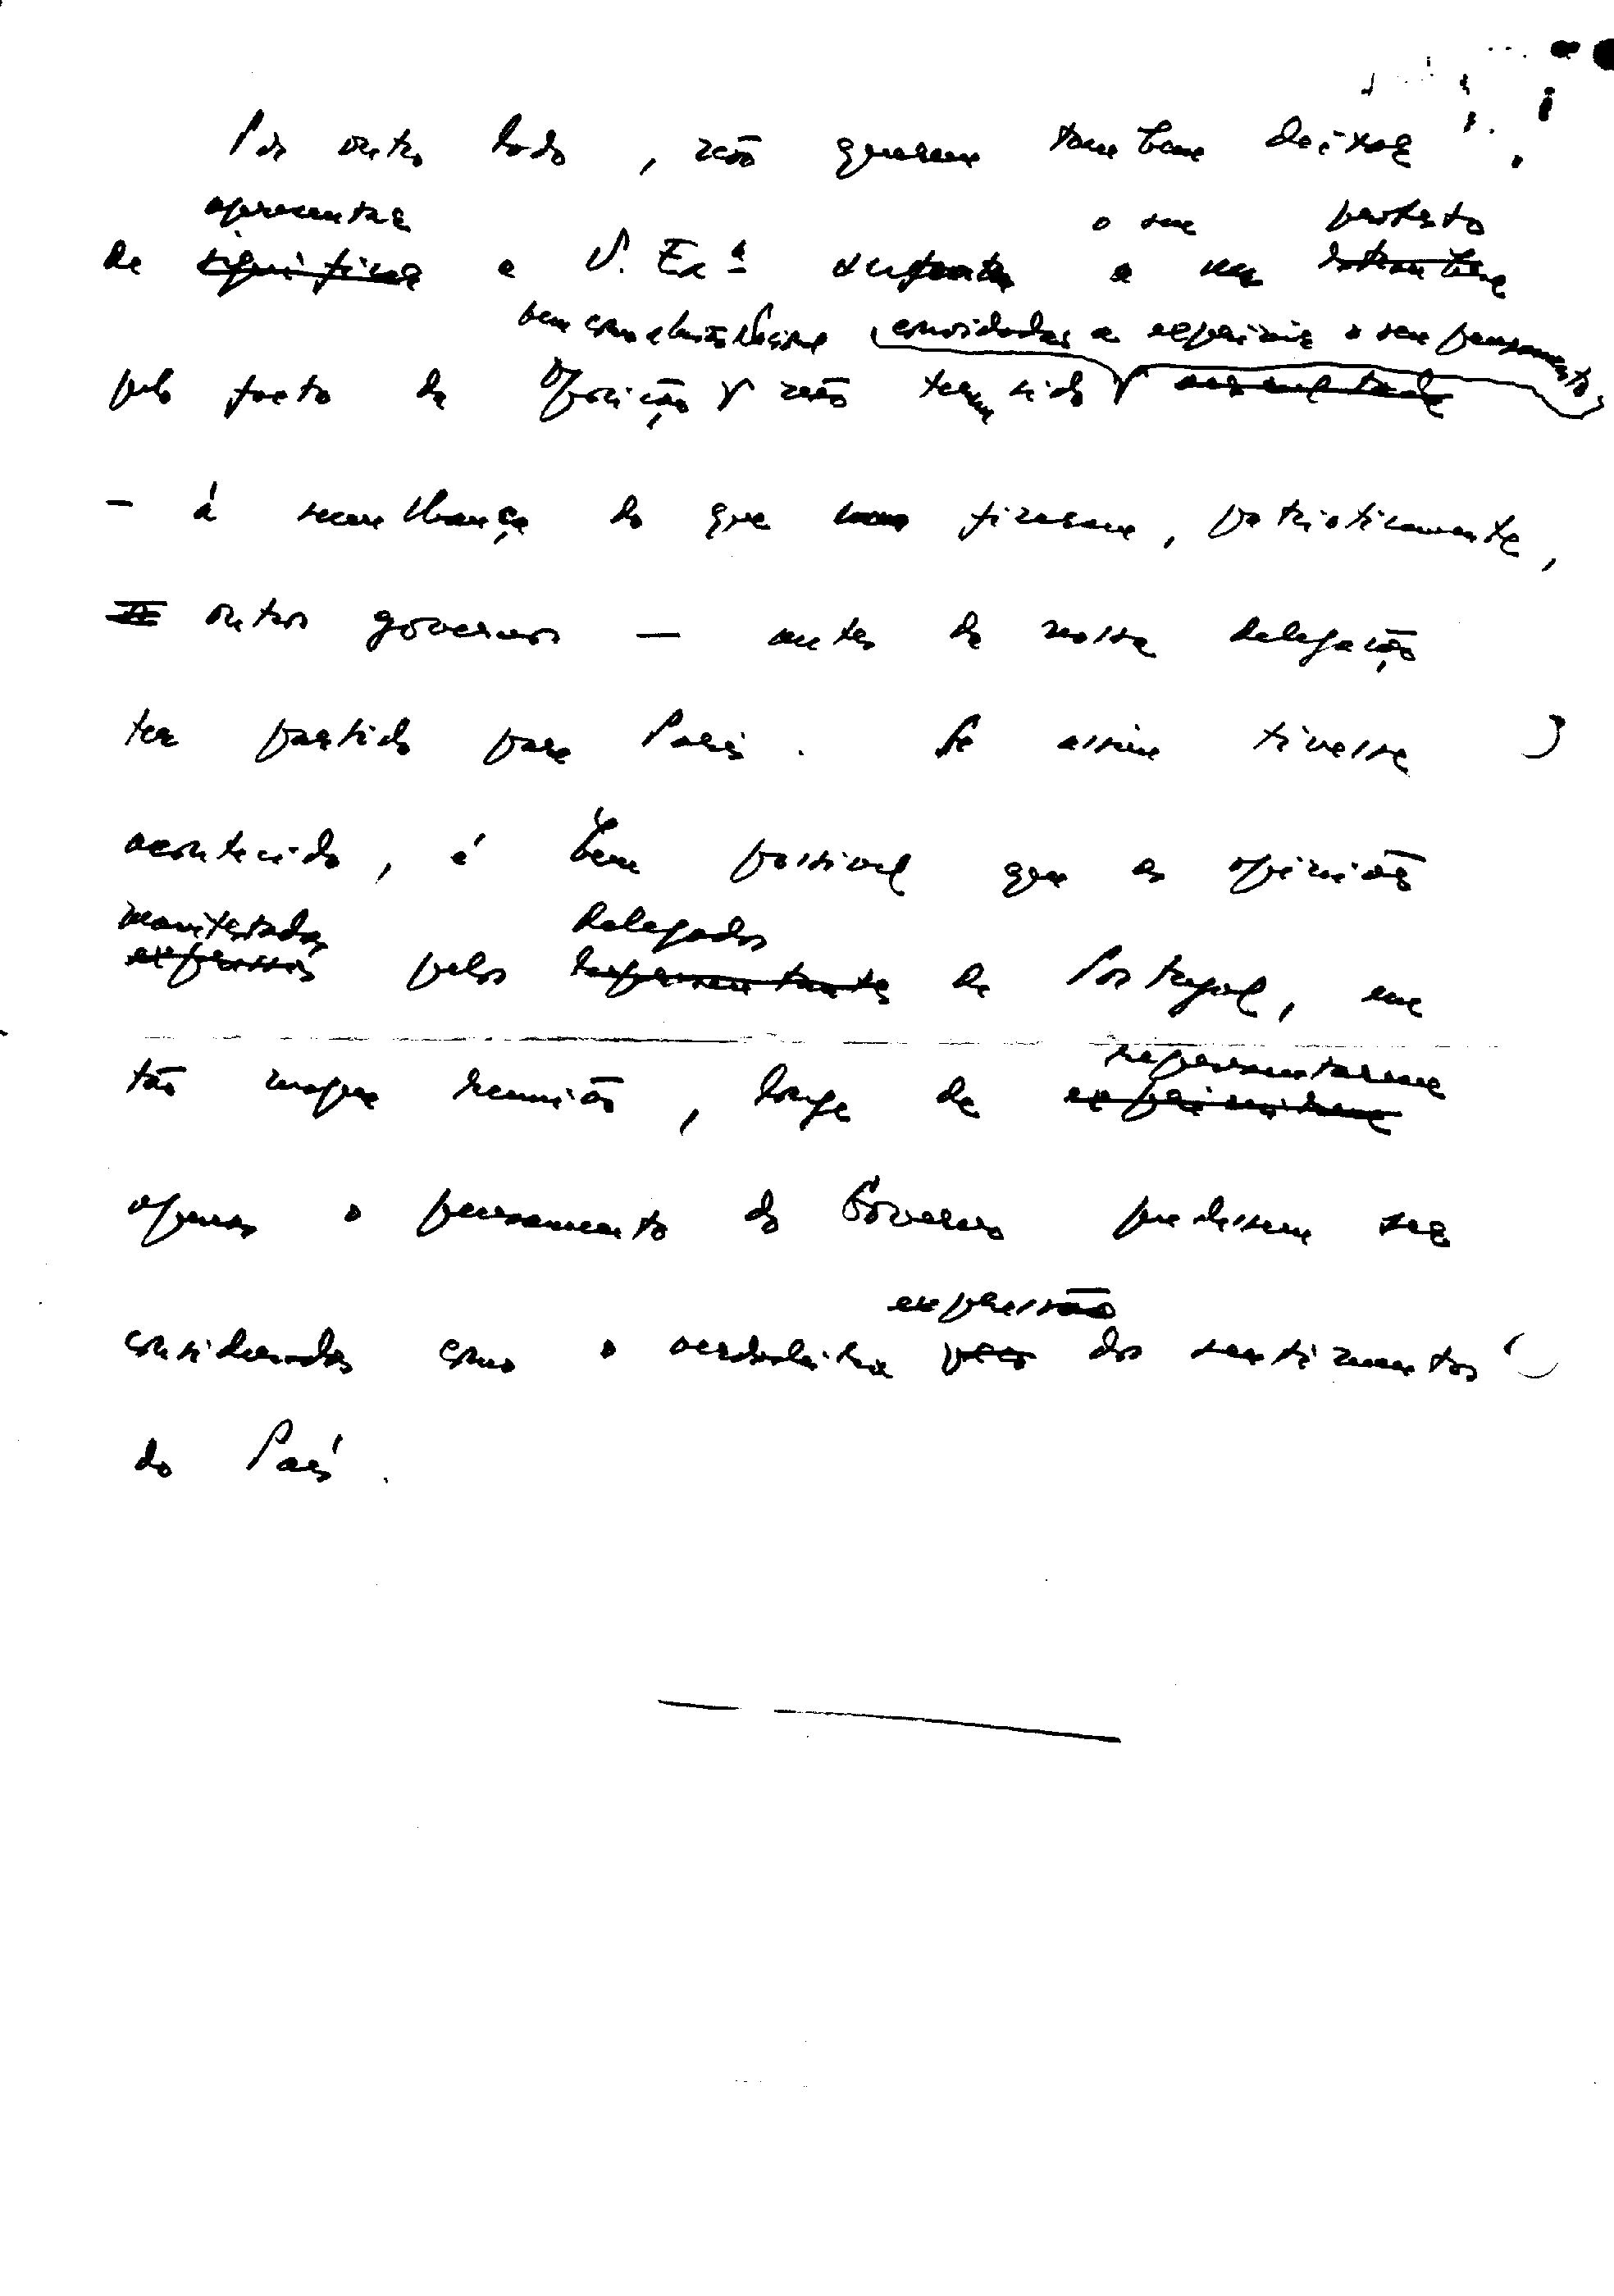 Por outro lado, não querem também deixar
apresentar o seu protesto
de significar a V. Exª a sua
bem como a União Nacional convidadas a exprimir o seu pensamento,
pelo facto da Oposição não terem sido
- à semelhança do que fizeram, patrioticamente,
outros governos — antes da nossa delegação
ter partido para Paris. Se assim tivesse
acontecido, é bem possível que as opiniões
manifestadas delegados
expressas pelos representantes de Portugal, em
tão magna reunião, longe de
representarem
apenas o pensamento do Governo pudessem ser
expressão
consideradas como a verdadeira voz dos sentimentos
do País.